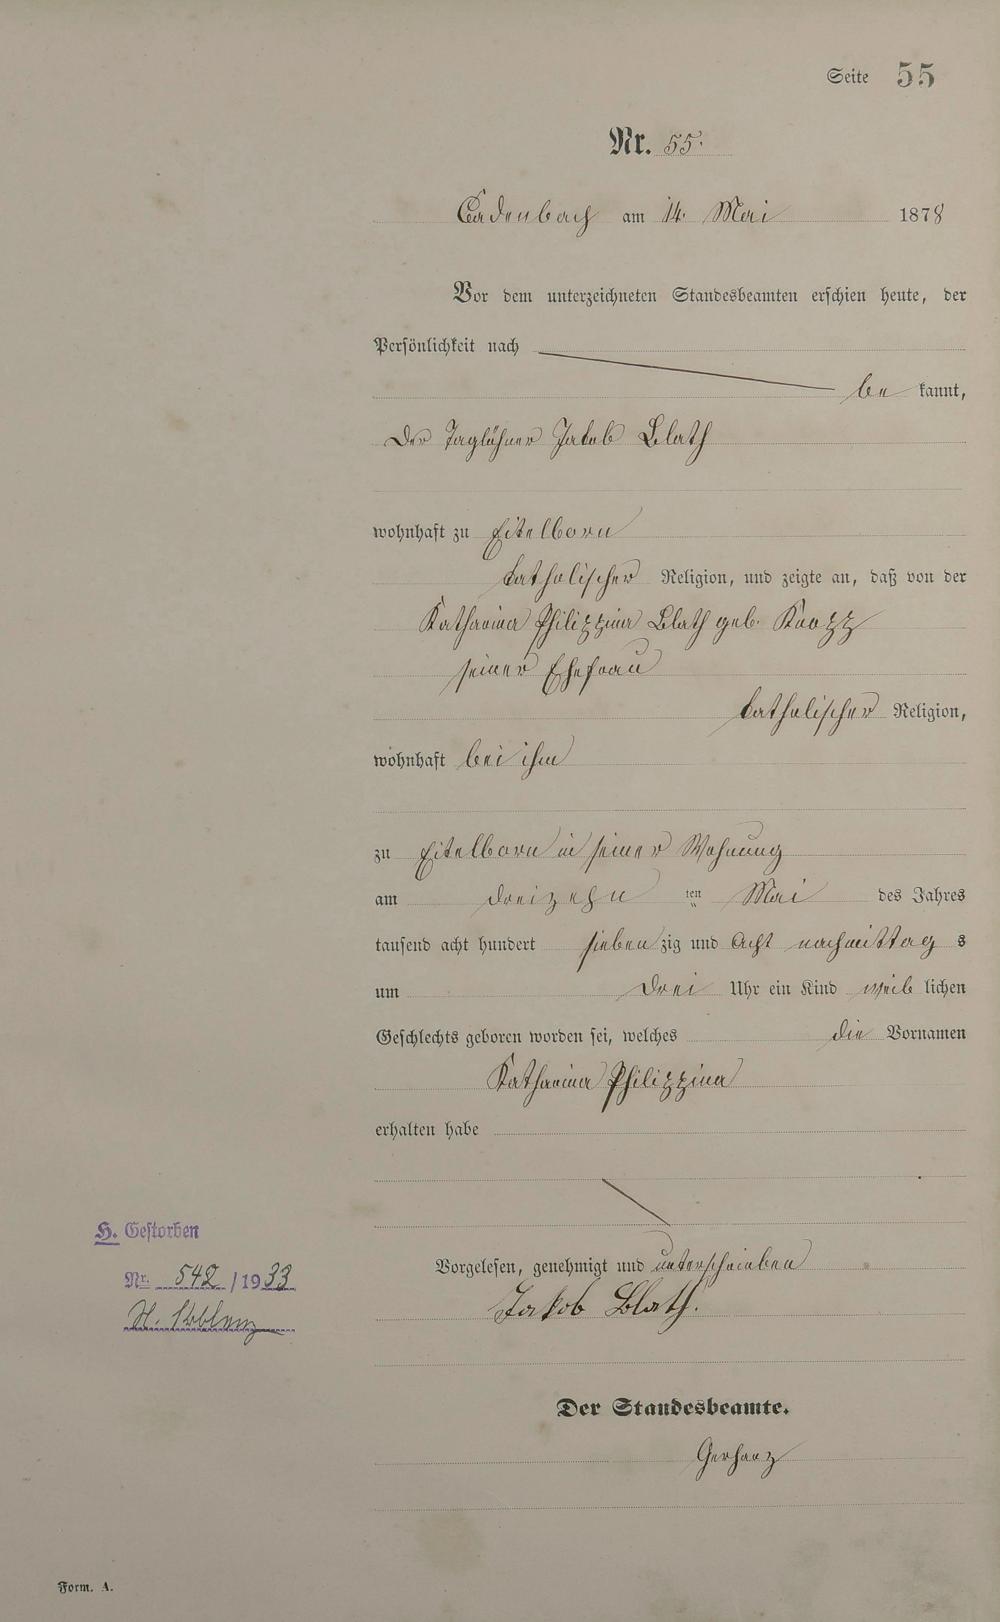 Seite 55
Nr. 55.
Cadenbach am 14. Mai 1878
Vor dem unterzeichneten Standesbeamten erschien heute, der
Persönlichkeit nach
bekannt,
der Taglöhner Jakob Blath
wohnhaft zu Eitelborn
katholischer Religion, und zeigte an, daß von der
Katharina Philippina Blath geb. Knopp
seiner Ehefrau
katholischer Religion,
wohnhaft bei ihm
zu Eitelborn in seiner Wohnung
am dreizehn ten Mai des Jahres
tausend acht hundert siebenzig und acht nachmittags
um drei Uhr ein Kind weiblichen
Geschlechts geboren worden sei, welches die Vornamen
Katharina Philippina
erhalten habe
H. Gestorben
Nr. 542 / 1933
St. Koblenz
Vorgelesen, genehmigt und unterschrieben
Jakob Blath.
Der Standesbeamte.
Gerharz
Form. A.